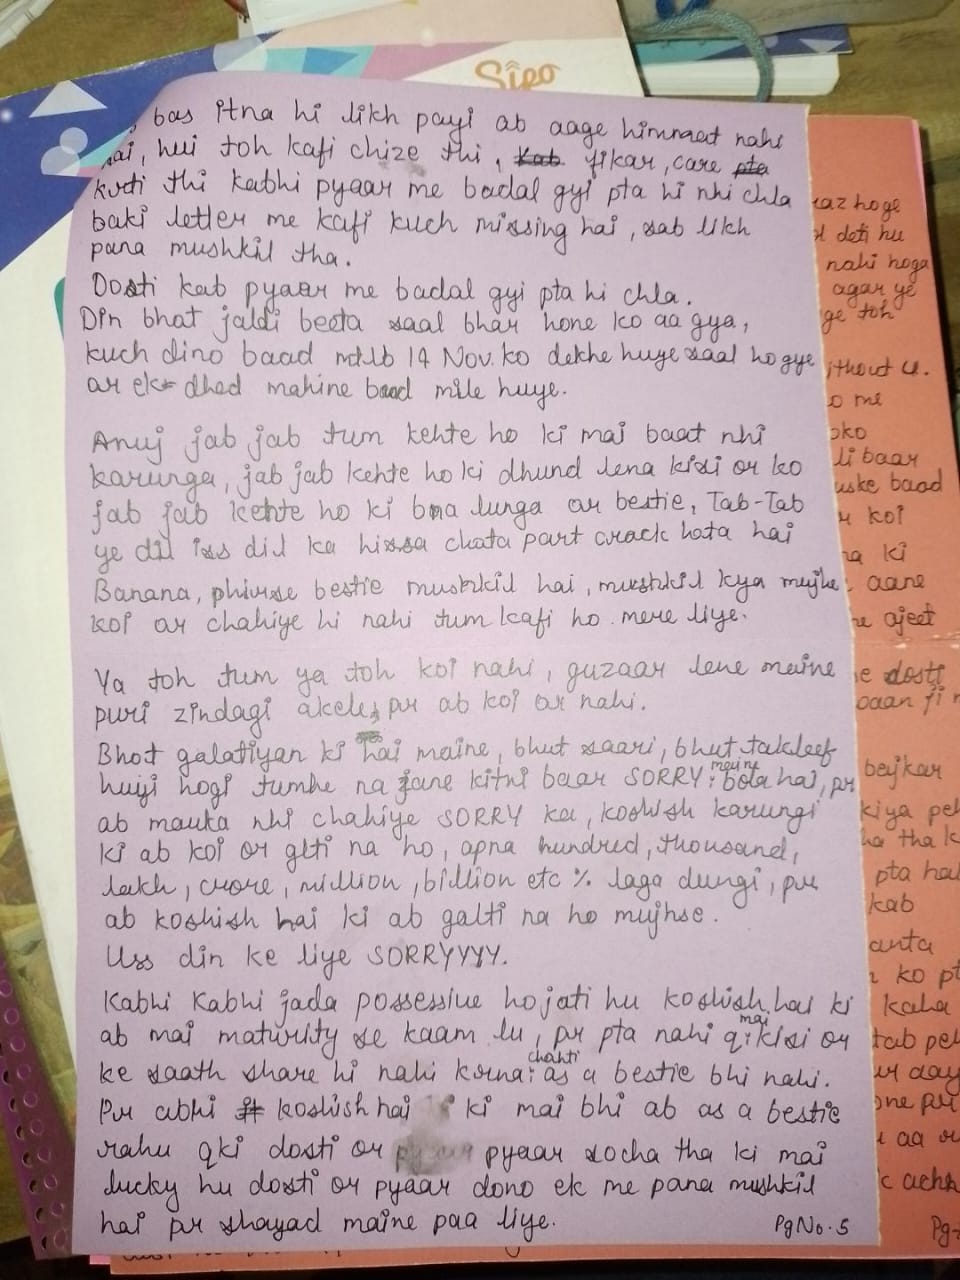 Sipo
bas itna hi likh payi ab aage himmat nahi
hai, hui toh kafi chize thi, Kab fikar, care pta
krti thi kabhi pyaar me badal gyi pta hi nhi chla
baki letter me kafi kuch missing hai, sab likh
pana mushkil tha.
Dosti kab pyaar me badal gyi pta hi chla.
Din bhat jaldi beeta saal bhar hone ko aa gya,
kuch dino baad mtlb 14 Nov. ko dekhe huye saal ho gye
ar ek dhed mahine baad mile huye.
Anuj jab jab tum kehte ho ki mai baat nhi
karunga, jab jab kehte ho ki dhund lena kisi or ko
jab jab kehte ho ki bna lunga ar bestie, Tab-Tab
ye dil iss dil ka hissa chota part crack hota hai
Banana, phirse bestie mushkil hai, mushkil kya mujhe
koi ar chahiye hi nahi tum kafi ho mere liye.
Ya toh tum ya toh koi nahi, guzaar lene maine
puri zindagi akele, pr ab koi or nahi.
Bhot galatiyan ki hai maine, bhut saari, bhut takleef
huyi hogi tumhe na jane kitni baar SORRY maine bola hai, pr
ab mauka nhi chahiye SORRY ka, koshish karungi
ki ab koi or glti na ho, apna hundred, thousand,
lakh, crore, million, billion etc % laga dungi, pr
ab koshish hai ki ab galti na ho mujhse.
Uss din ke liye SORRYYYY.
Kabhi Kabhi jada possessive ho jati hu koshish hai ki
ab mai maturity se kaam lu, pr pta nahi q mai kisi or
ke saath share hi nahi krna chahti as a bestie bhi nahi.
Pr abhi koshish hai ki mai bhi ab as a bestie
rahu qki dosti or pyaar pyaar socha tha ki mai
lucky hu dosti or pyaar dono ek me pana mushkil
hai pr shayad maine paa liye.
Pg No. 5
raz hoge
deti hu
nahi hoga
agar ye
ge toh
ithout u.
me
oko
li baar
uske baad
koi
na ki
aane
ajeet
e dosti
baan ji
bejkar
kiya pel
ha tha k
pta hai
kab
anta
ko pt
kaha
tab pel
ur day
one pr
aa
achh
Pg